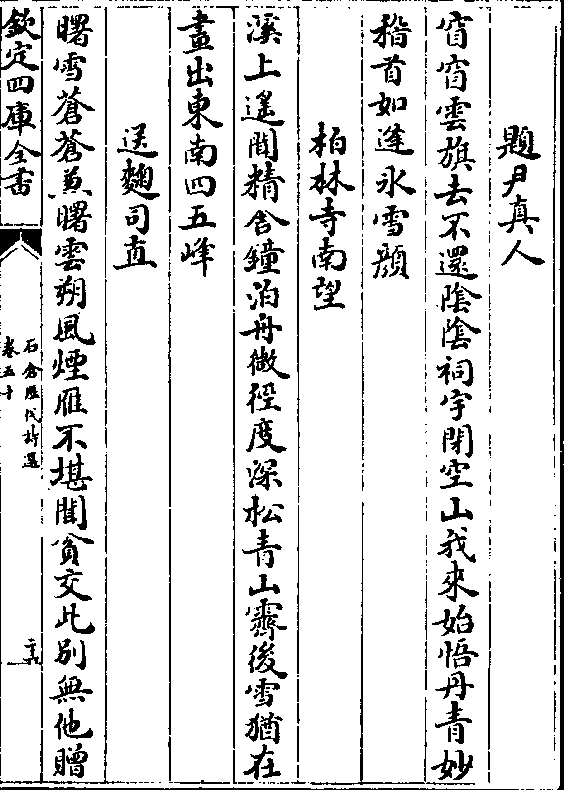 題尹真人
窅窅雲旗去不還陰陰祠宇閉空山我來始悟丹青妙
稽首如逢氷雪顔
柏林寺南望
溪上遥聞精舍鐘泊舟微徑度深松青山霽後雪猶在
畫出東南四五峰
送麴司直
曙雪蒼蒼兼曙雲朔風煙雁不堪聞貧交此别無他贈
欽定四庫全書
石倉歷代詩選
卷五十